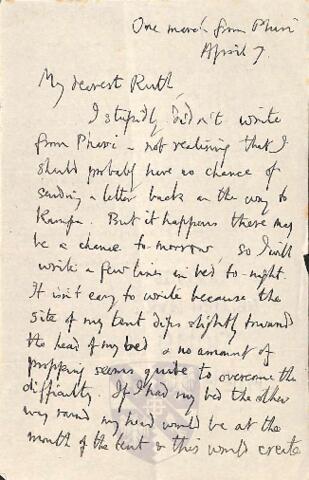 One march from Phari
April 7.
My dearest Ruth,
I stupidly didn't write
from Phari - not realising that I
should probably have no chance of
sending a letter back on the way to
Kampa. But it happens there may
be a chance to-morrow, so I will
write a few lines in bed to-night.
It isn't easy to write because the
site of my tent dips slightly towards
the head of my bed & no amount of
propping seems quite to overcome the
difficulty. If I had my bed the other
way round my head would be at the
mouth of the tent & this would create